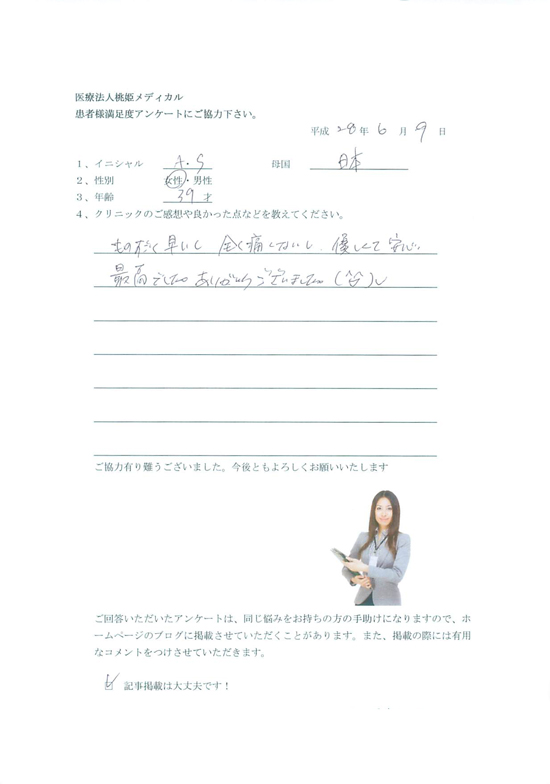 医療法人桃姫メディカル
患者様満足度アンケートにご協力下さい。
平成 28 年 6 月 9 日
1、イニシャル A・S 母国 日本
2、性別 女性・男性
3、年齢 39 才
4、クリニックのご感想や良かった点などを教えてください。
もの凄く早いし 全く痛くないし、優しくて安心
最高でした。ありがとうございました。
ご協力有り難うございました。今後ともよろしくお願いいたします
ご回答いただいたアンケートは、同じ悩みをお持ちの方の手助けになりますので、ホ
ームページのブログに掲載させていただくことがあります。また、掲載の際には有用
なコメントをつけさせていただきます。
記事掲載は大丈夫です！